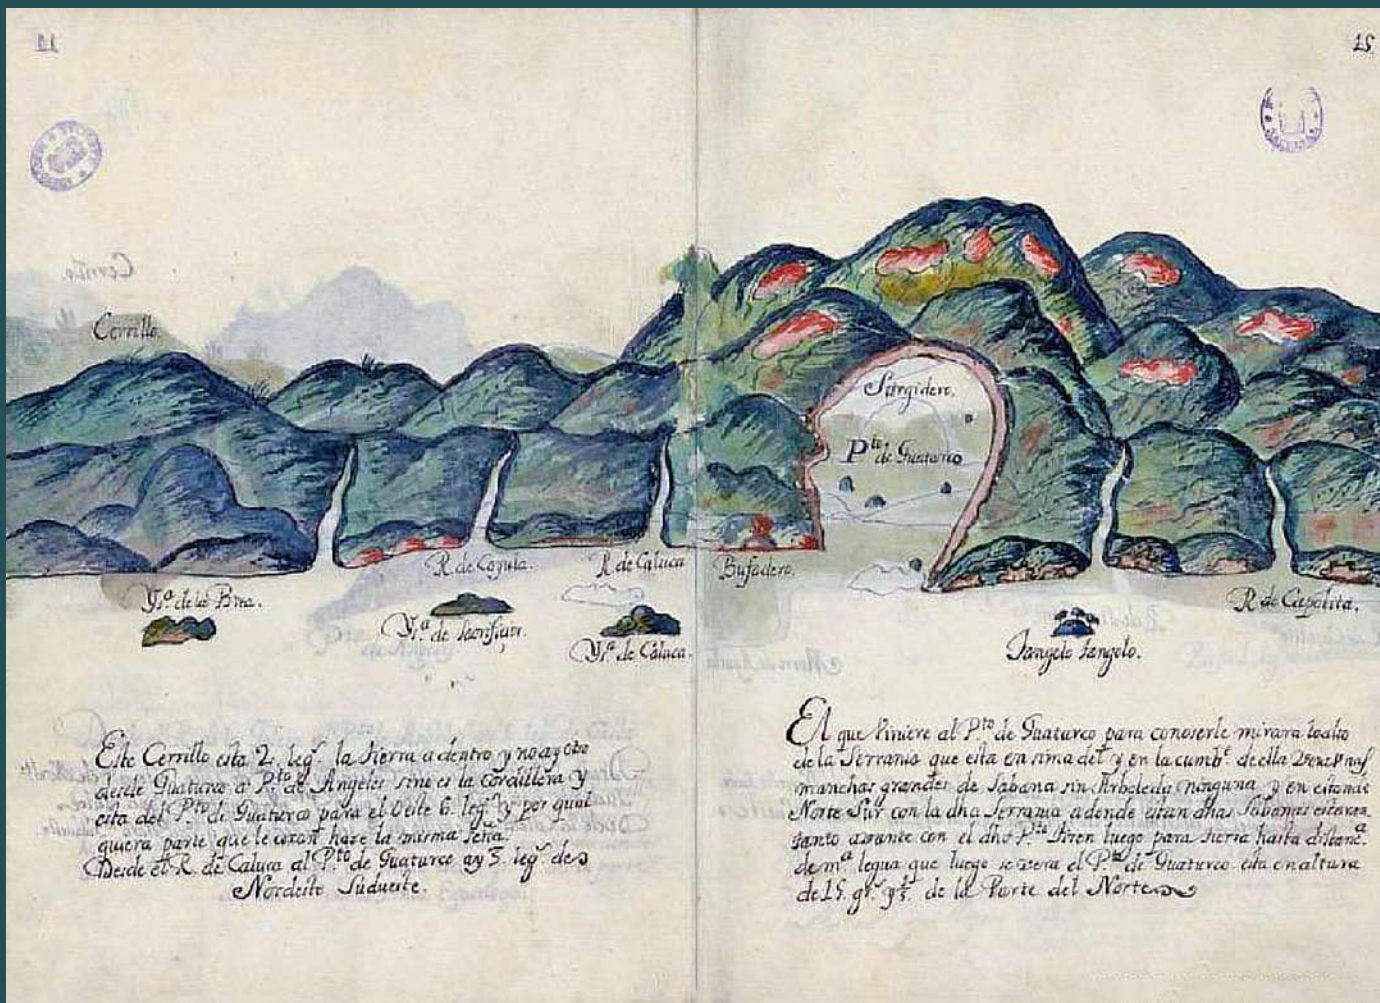 25
Cerrillo.
Surgidero.
Pto de Guaturco
R. de Coyula.
R de Caluca
Bufadero.
Ysa de la Brea.
Ysa de Sacrificios.
Ysa de Caluca.
Tangolo Tangolo.
R. de Capalita.
Este Cerrillo esta 2. legs. la tierra a dentro y no ay otro
desde Guaturco a Pto de Angeles sino es la Cordillera y
esta del Pto de Guaturco para el Oeste 6. legs. y por qual
quiera parte que le haze la misma seña.
Desde el R. de Caluca al Pto de Guaturco ay 3. legs. de
Nordeste Sudueste.
El que Viniere al Pto de Guaturco para conoserle mirara lo alto
de la Serrania que esta en sima del y en la cumbe. de ella Vera Unas
manchas grandes de Sabana sin Arboleda ninguna y en estando
Norte Sur con la dha Serrania adonde estan dhas Sabanas estaran
tanto avante con el dho Pto Viren luego para tierra hasta
de ma legua que luego se vera el Pto de Guaturco esta en altura
de 15. gr. y de la Parte del Norte